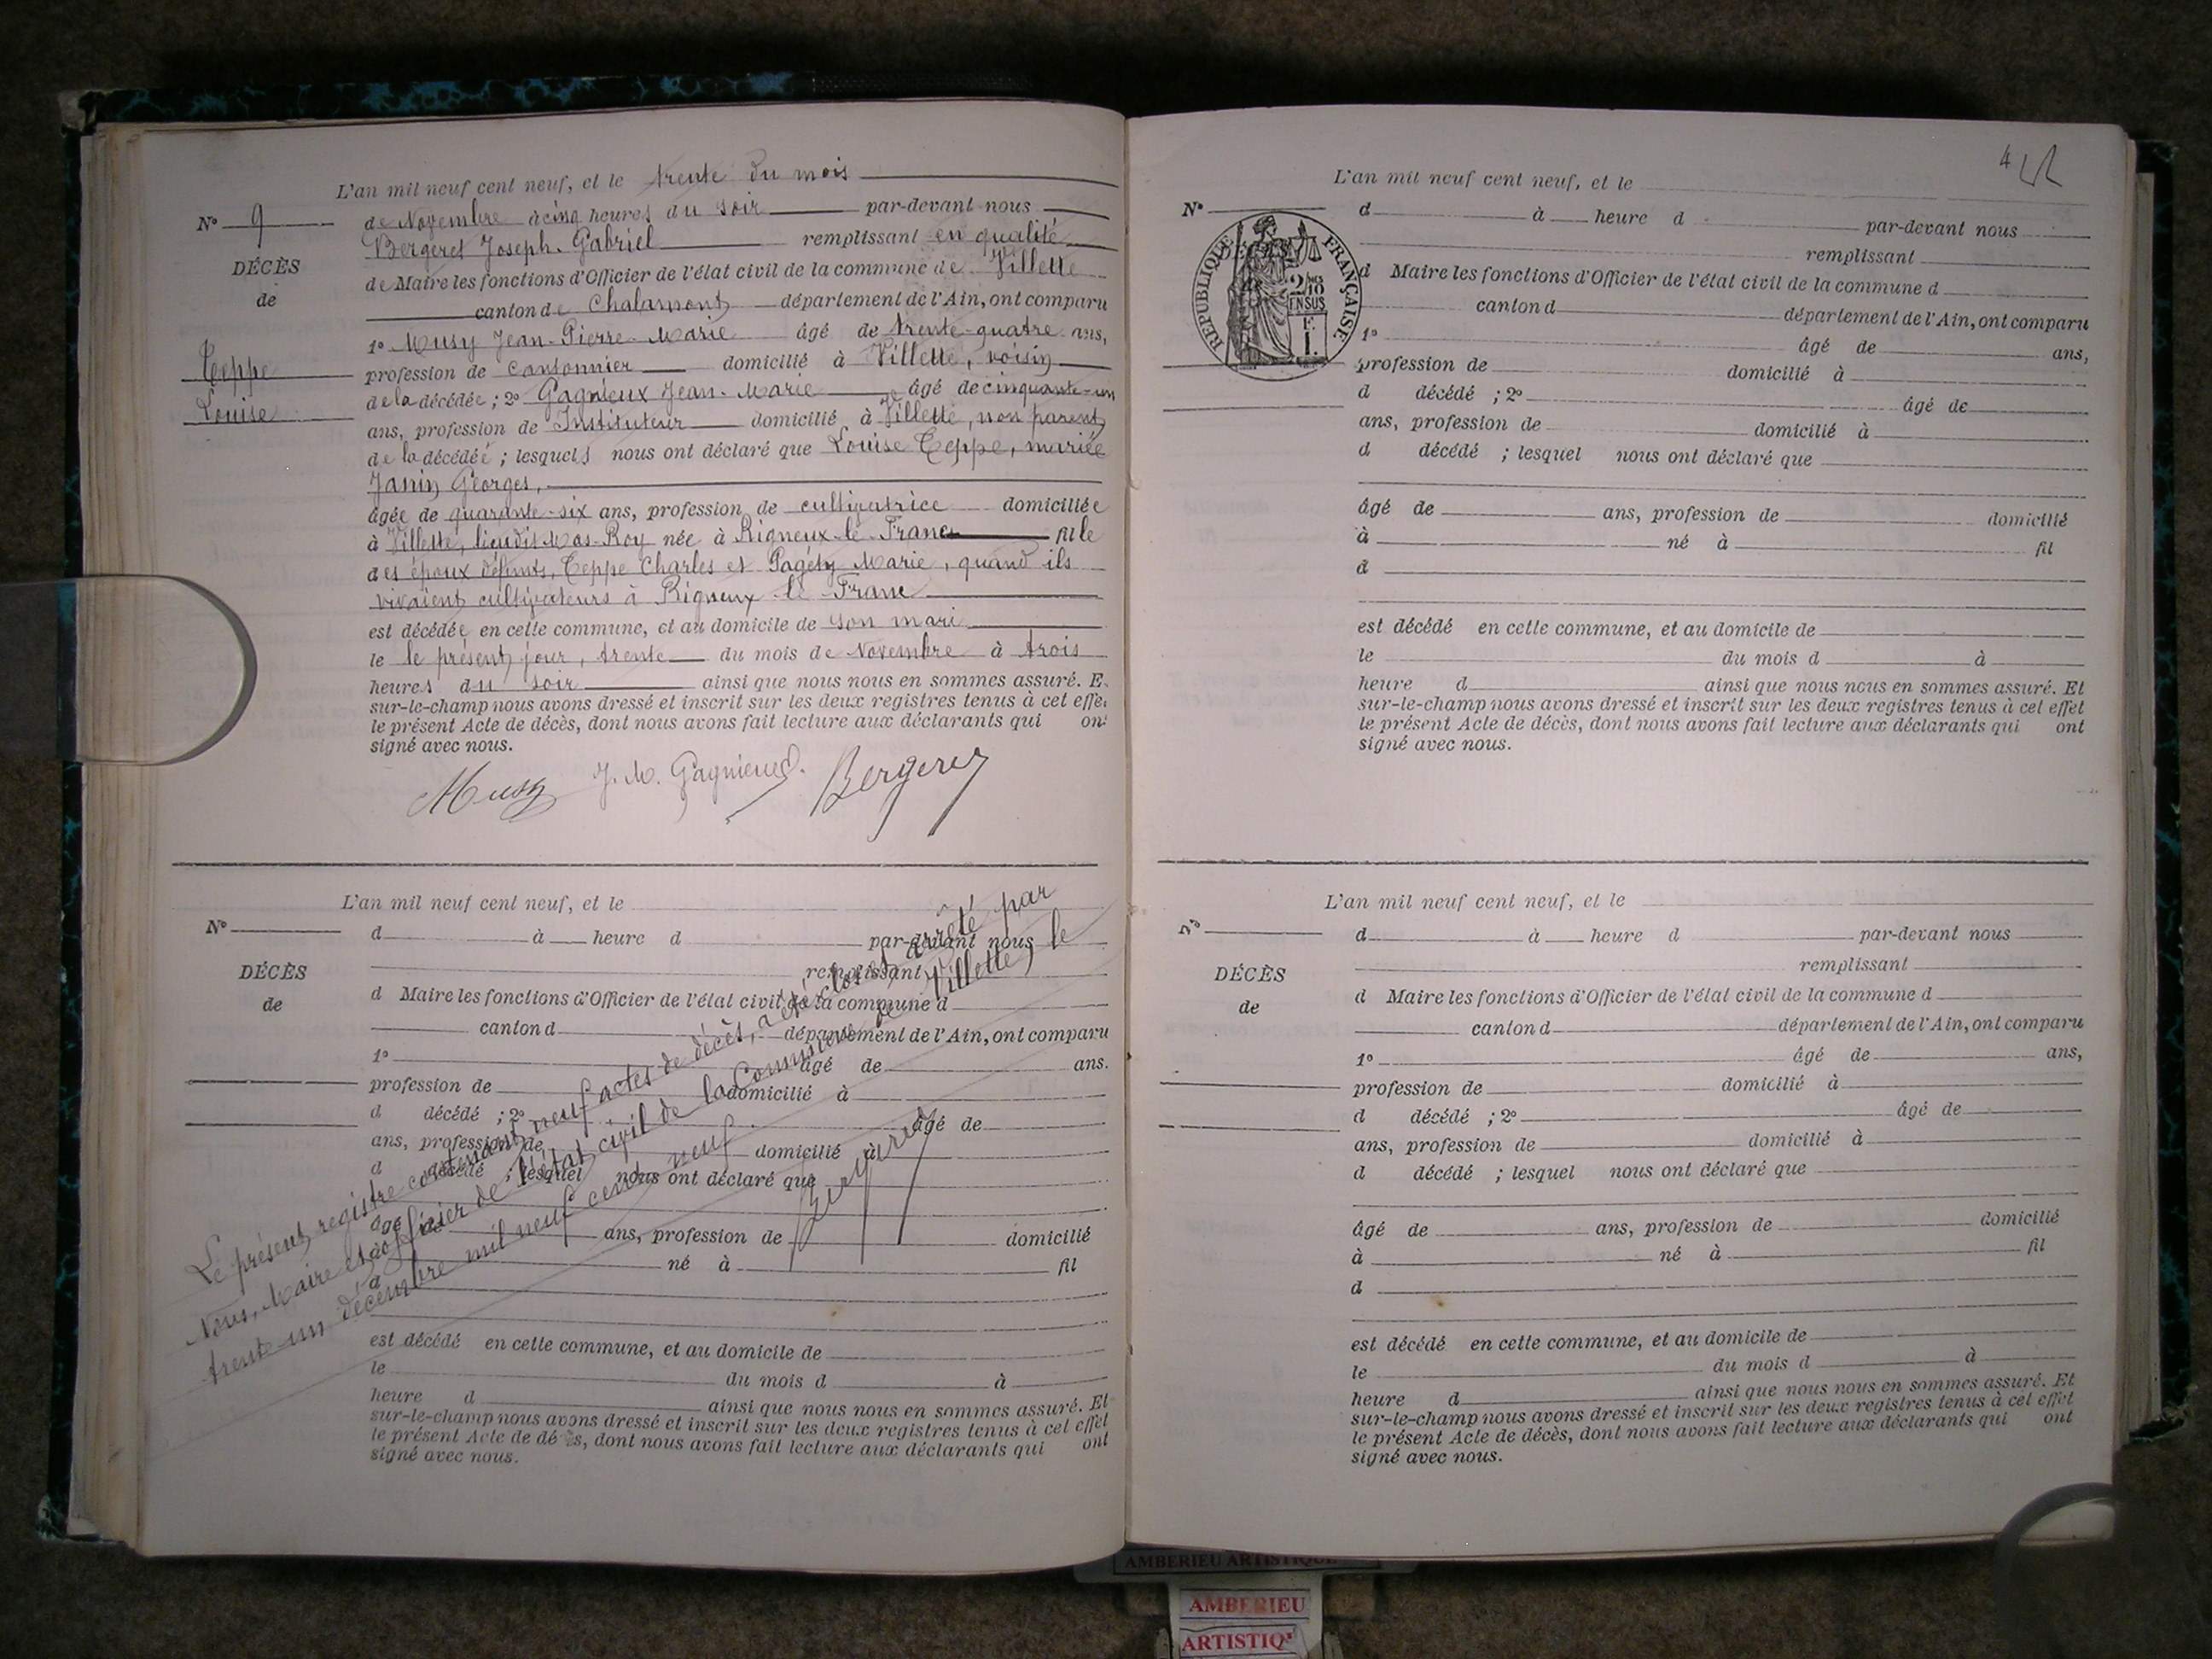 L'an mil neuf cent neuf, et le trente du mois
N° 9
de Novembre à cinq heures du soir par-devant nous
Bergeret Joseph-Gabriel remplissant en qualité
DÉCÈS
de Maire les fonctions d'Officier de l'état civil de la commune de Villette
de
canton de Chalamont département de l'Ain, ont comparu
1° Musy Jean-Pierre-Marie âgé de trente-quatre ans,
Teppe
profession de Cantonnier domicilié à Villette, voisin
Louise
de la décédée ; 2° Gagnieux Jean-Marie âgé de cinquante-un
ans, profession de Instituteur domicilié à Villette, non parent
de la décédée ; lesquels nous ont déclaré que Louise Teppe, mariée
Janin Georges,
âgée de quarante-six ans, profession de cultivatrice domiciliée
à Villette, lieudit Mas-Roy née à Rigneux-le-Franc fille
des époux défunts, Teppe Charles et Pagéty Marie, quand ils
vivaient cultivateurs à Rigneux-le-Franc
est décédée en cette commune, et au domicile de son mari
le le présent jour, trente du mois de Novembre à trois
heures du soir ainsi que nous nous en sommes assuré. E
sur-le-champ nous avons dressé et inscrit sur les deux registres tenus à cet effe
le présent Acte de décès, dont nous avons fait lecture aux déclarants qui on
signé avec nous.
Musy J. M. Gagnieux. Bergeret
L'an mil neuf cent neuf, et le
N°
d à heure d par-devant nous
remplissant
DÉCÈS
d Maire les fonctions d'Officier de l'état civil de la commune d
de
canton d département de l'Ain, ont comparu
1° âgé de ans.
profession de domicilié à
d décédé ; 2° âgé de
ans, profession de domicilié à
d décédé ; lesquel nous ont déclaré que
âgé de ans, profession de domicilié
à né à fil
d
est décédé en cette commune, et au domicile de
le du mois d à
heure d ainsi que nous nous en sommes assuré. Et
sur-le-champ nous avons dressé et inscrit sur les deux registres tenus à cet effet
le présent Acte de décès, dont nous avons fait lecture aux déclarants qui ont
signé avec nous.
Le présent registre contenant neuf actes de décès, a été clos et arrêté par
Nous, Maire et officier de l'état civil de la Commune de Villette, le
trente-un décembre mil neuf cent neuf
Bergeret
4
L'an mil neuf cent neuf, et le
N°
d à heure d par-devant nous
remplissant
DÉCÈS
RÉPUBLIQUE FRANÇAISE
2/10
EN SUS
F.
1.
d Maire les fonctions d'Officier de l'état civil de la commune d
canton d département de l'Ain, ont comparu
1° âgé de ans,
profession de domicilié à
d décédé ; 2° âgé de
ans, profession de domicilié à
d décédé ; lesquel nous ont déclaré que
âgé de ans, profession de domicilié
à né à fil
d
est décédé en cette commune, et au domicile de
le du mois d à
heure d ainsi que nous nous en sommes assuré. Et
sur-le-champ nous avons dressé et inscrit sur les deux registres tenus à cet effet
le présent Acte de décès, dont nous avons fait lecture aux déclarants qui ont
signé avec nous.
L'an mil neuf cent neuf, et le
N°
d à heure d par-devant nous
remplissant
DÉCÈS
d Maire les fonctions d'Officier de l'état civil de la commune d
de
canton d département de l'Ain, ont comparu
1° âgé de ans,
profession de domicilié à
d décédé ; 2° âgé de
ans, profession de domicilié à
d décédé ; lesquel nous ont déclaré que
âgé de ans, profession de domicilié
à né à fil
d
est décédé en cette commune, et au domicile de
le du mois d à
heure d ainsi que nous nous en sommes assuré. Et
sur-le-champ nous avons dressé et inscrit sur les deux registres tenus à cet effet
le présent Acte de décès, dont nous avons fait lecture aux déclarants qui ont
signé avec nous.
AMBERIEU ARTISTIQUE
AMBERIEU
ARTISTIQ